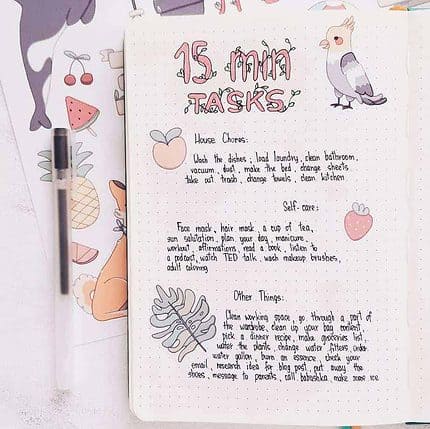 15 min
TASKS
House Chores:
Wash the dishes, load laundry, clean bathroom,
vacuum, dust, make the bed, change sheets
take out trash, change towels, clean kitchen
Self-care:
Face mask, hair mask, a cup of tea,
sun salutation, plan your day, manicure,
workout, affirmations, read a book, listen to
a podcast, watch TED talk, wash makeup brushes,
adult coloring
Other Things:
Clean working space, go through a part of
the wardrobe, clean up your bag content,
pick a dinner recipe, make groceries list,
water the plants, change water filters, order
water gallon, burn an essence, check your
email, research idea for blog post, put away the
shoes, message to parents, call babushka, make some ice